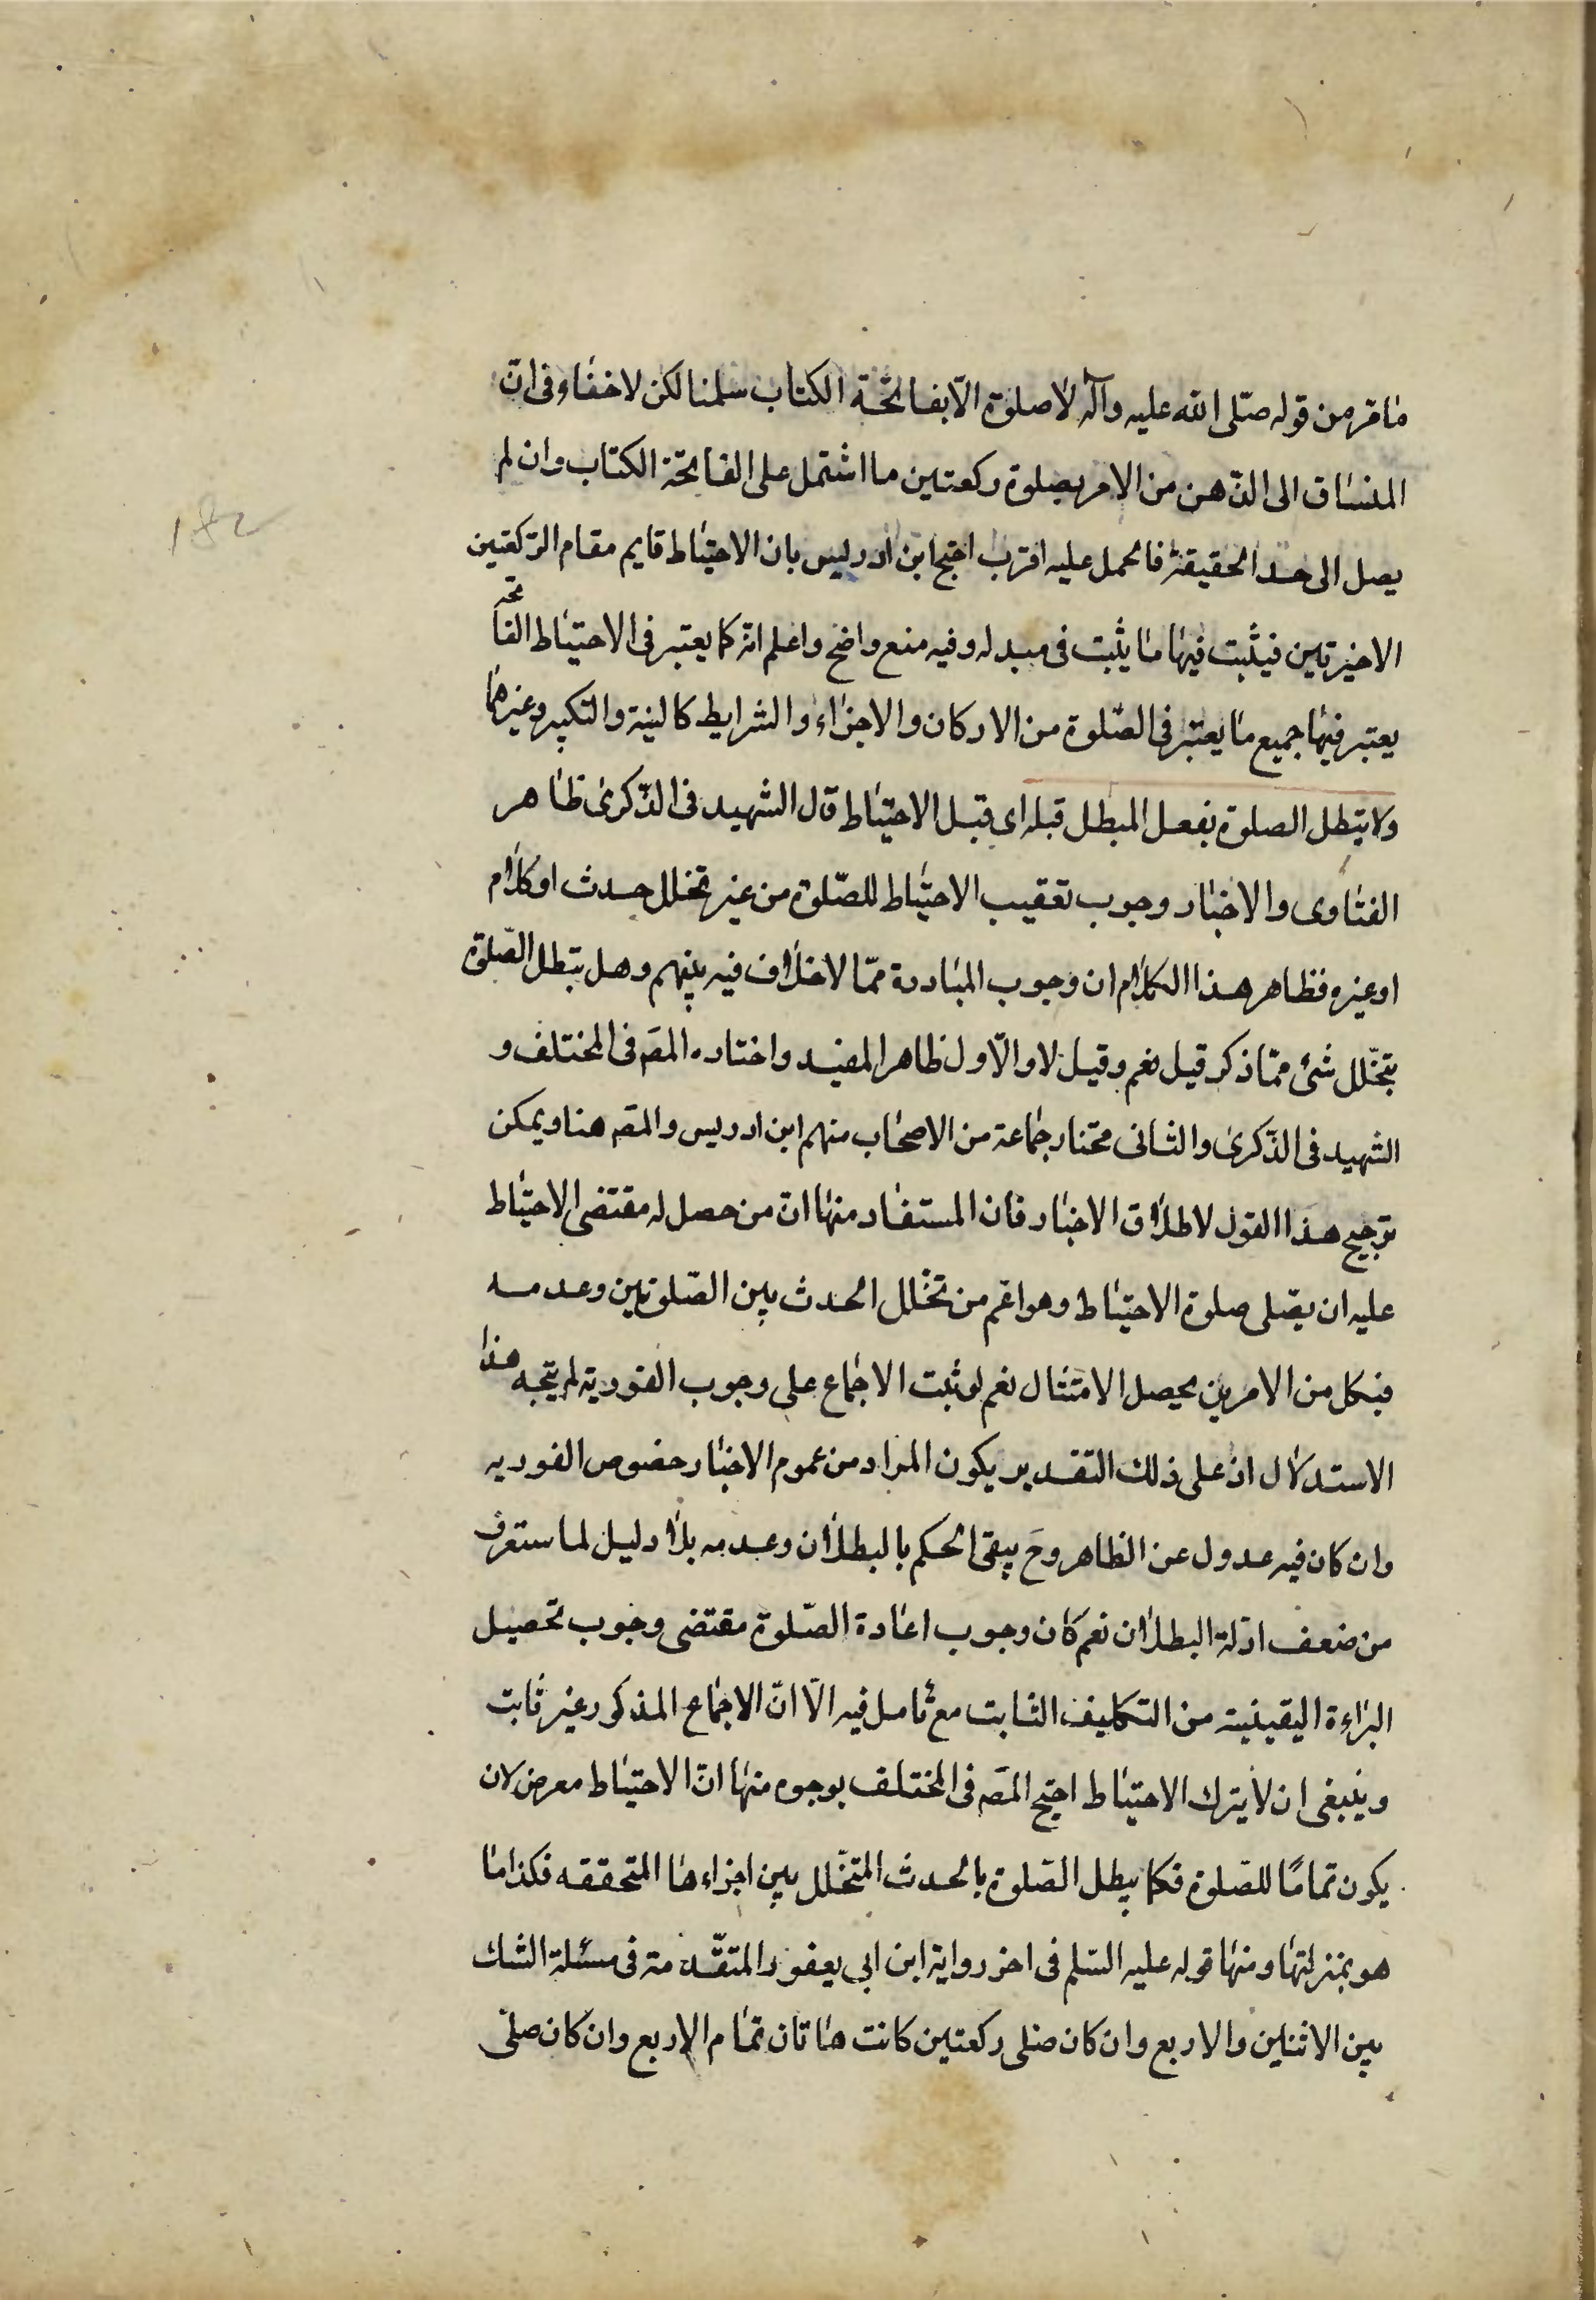 مامر من قوله صلّى الله عليه وآله لاصلوة الّا بفاتحة الكتاب سلمنا لكن لاخفاء فى انّ
المنساق الى الذّهن من الامر بصلوة ركعتين ما اشتمل على الفاتحة الكتاب وان لم
يصل الى حد الحقيقة فالحمل عليه اقرب احتج ابن ادريس بان الاحتياط قايم مقام الركعتين
الاخيرتين فيثبت فيها ما يثبت فى مبدله وفيه منع واضح واعلم انه كما يعتبر فى الاحتياط الفاتحه
يعتبر فيها جميع ما يعتبر فى الصّلوة من الاركان والاجزاء والشرايط كالنية والتكبير وغيرهما
ولا يبطل الصلوة بفعل المبطل قبله اى قبل الاحتياط قال الشهيد فى الذّكرى ظاهر
الفتاوى والاخبار وجوب تعقيب الاحتياط للصّلوة من غير تخلل حدث او كلام
او غيره فظاهر هذا الكلام ان وجوب المبادرة ممّا لا خلاف فيه بينهم وهل يبطل الصّلوة
بتخلّل شئ ممّا ذكر قيل نعم وقيل لا والاول ظاهر المفيد واختاره المصَ فى المختلف و
الشهيد فى الذّكرى والثانى مختار جماعة من الاصحاب منهم ابن ادريس والمصَ هنا ويمكن
ترجيح هذا القول لاطلاق الاخبار فان المستفاد منها انّ من حصل له مقتضى الاحتياط
عليه ان يصّلى صلوة الاحتياط وهو اعّم من تخلّل الحدث بين الصّلوتين وعدمه
فبكل من الامرين يحصل الامتثال نعم لو ثبت الاجماع على وجوب الفورية لم يتجه هذا
الاستدلال اذ على ذلك التقدير يكون المراد من عموم الاخبار خصوص الفوريه
وان كان فيه عدول عن الظاهر وحَ يبقى الحكم بالبطلان وعدمه بلا دليل لما ستعرف
من ضعف ادلة البطلان نعم كان وجوب اعادة الصّلوة مقتضى وجوب تحصيل
البراءة اليقينية من التكليف الثابت مع تامل فيه الّا انّ الاجماع المذكور غير ثابت
وينبغى ان لا يترك الاحتياط احتج المصَ فى المختلف بوجوه منها انّ الاحتياط معرض لان
يكون تمامًا للصّلوة فكما يبطل الصّلوة بالحدث المتخلّل بين اجزاءها المتحققه فكذا ما
هو بمنزلتها ومنها قوله عليه السّلم فى اخر رواية ابن ابى يعفور المتقّدمة فى مسئلة الشك
بين الاثنين والاربع وان كان صلى ركعتين كانت هاتان تمام الاربع وان كان صلّى